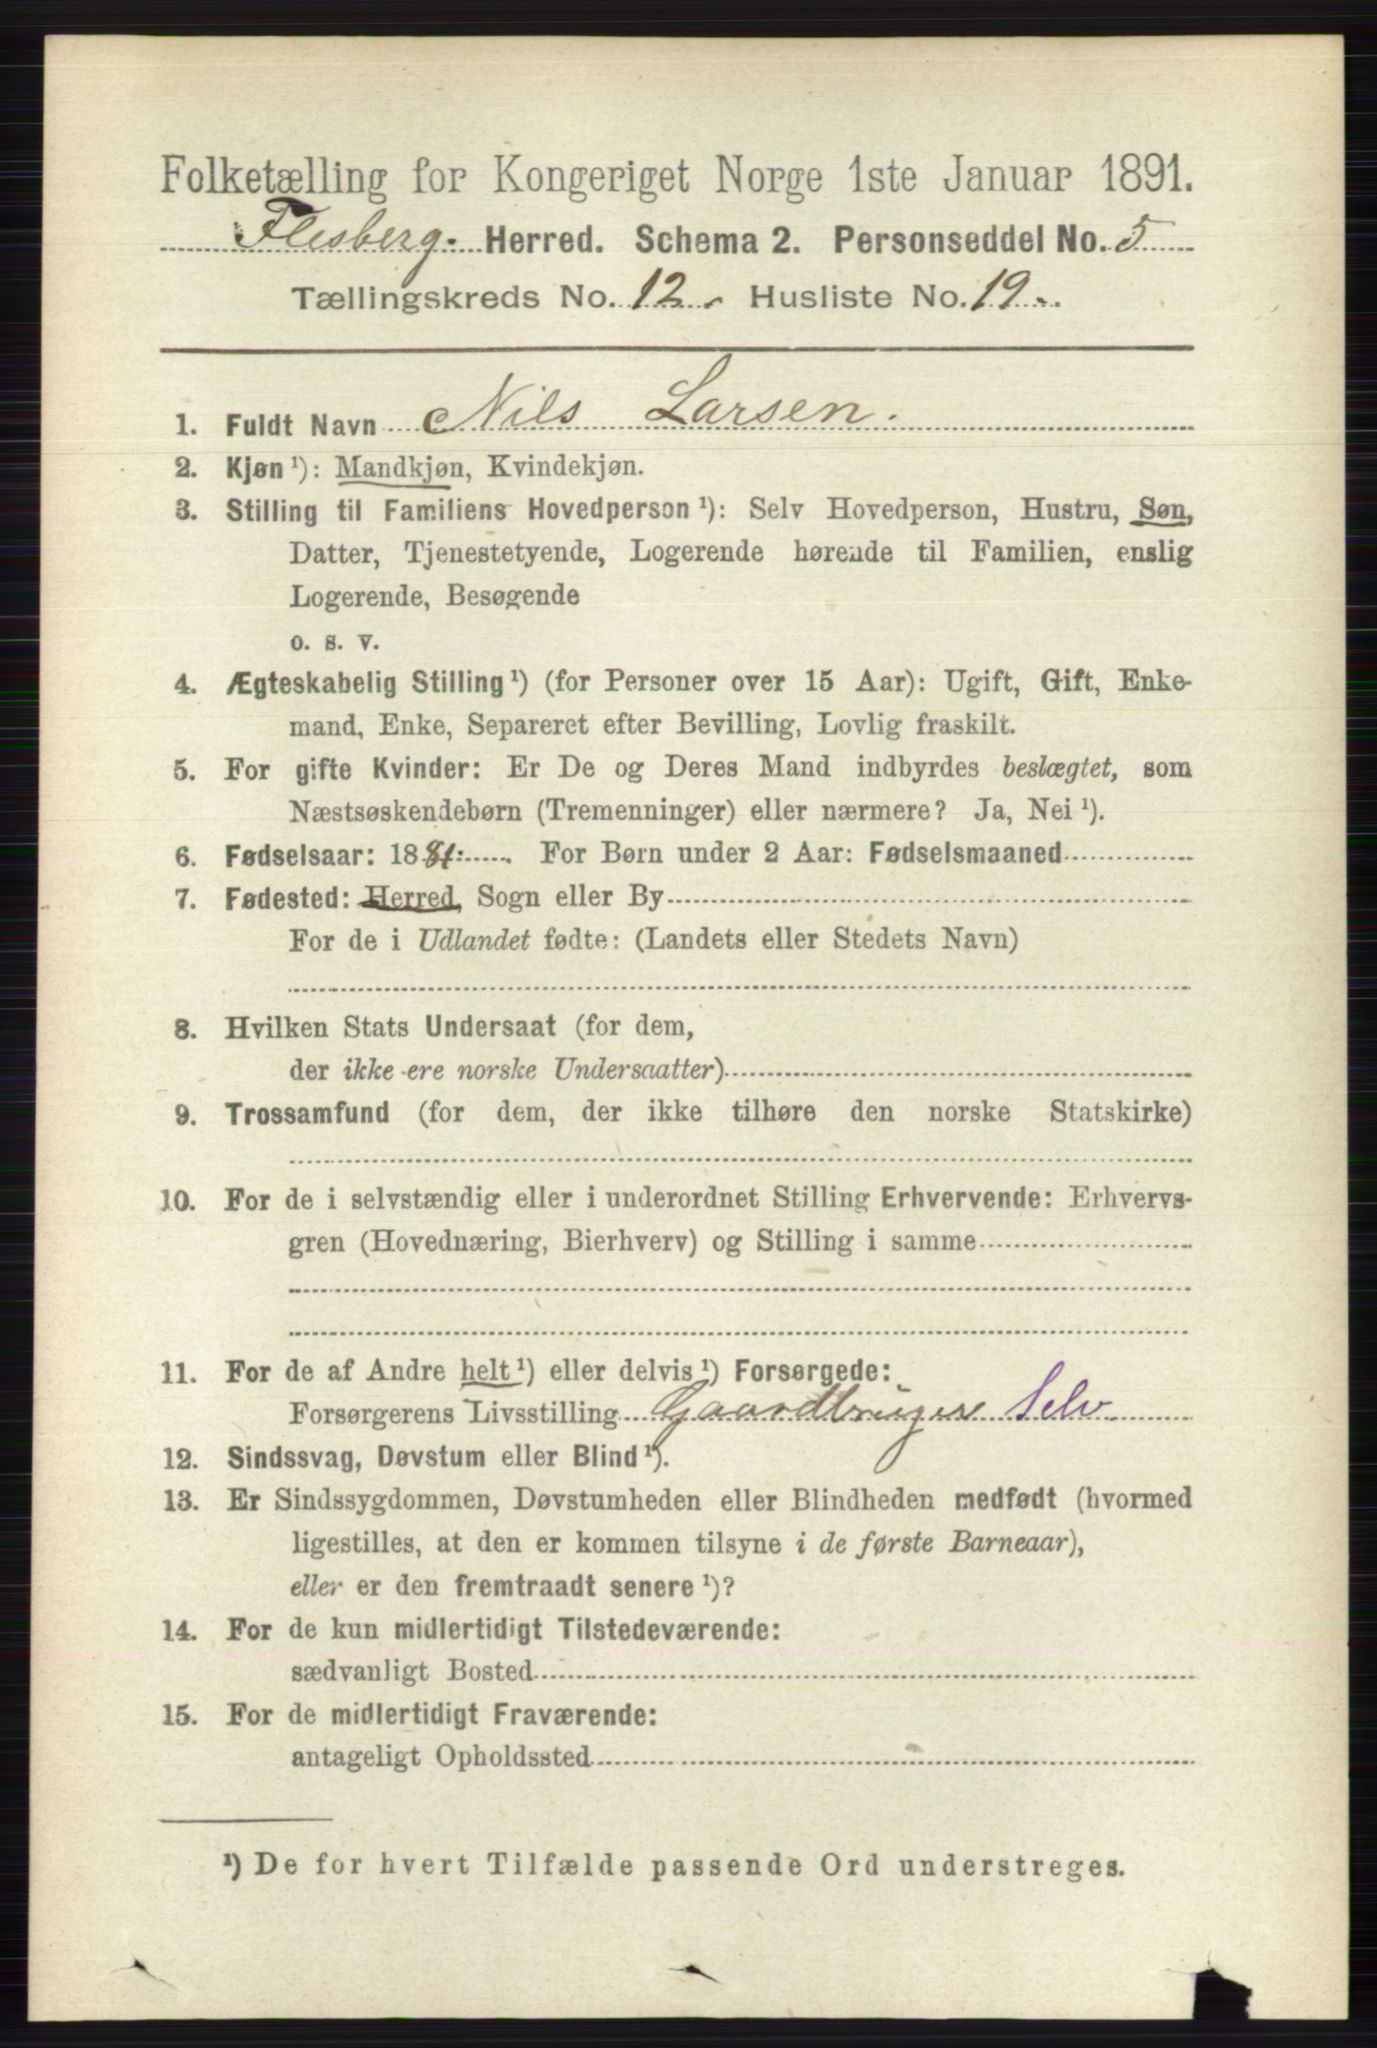 Folketælling for Kongeriget Norge 1ste Januar 1891.
Flesberg. Herred. Schema 2. Personseddel No. 5
Tællingskreds No. 12. Husliste No. 19.
1. Fuldt Navn Nils Larsen.
2. Kjøn ¹): Mandkjøn, Kvindekjøn.
3. Stilling til Familiens Hovedperson ¹): Selv Hovedperson, Hustru, Søn,
Datter, Tjenestetyende, Logerende hørende til Familien, enslig
Logerende, Besøgende
o. s. v.
4. Ægteskabelig Stilling ¹) (for Personer over 15 Aar): Ugift, Gift, Enke-
mand, Enke, Separeret efter Bevilling, Lovlig fraskilt.
5. For gifte Kvinder: Er De og Deres Mand indbyrdes beslægtet, som
Næstsøskendebørn (Tremenninger) eller nærmere? Ja, Nei ¹).
6. Fødselsaar: 1881. For Børn under 2 Aar: Fødselsmaaned
7. Fødested: Herred, Sogn eller By
For de i Udlandet fødte: (Landets eller Stedets Navn)
8. Hvilken Stats Undersaat (for dem,
der ikke ere norske Undersaatter)
9. Trossamfund (for dem, der ikke tilhøre den norske Statskirke)
10. For de i selvstændig eller i underordnet Stilling Erhvervende: Erhvervs-
gren (Hovednæring, Bierhverv) og Stilling i samme
11. For de af Andre helt ¹) eller delvis ¹) Forsørgede:
Forsørgerens Livsstilling Gaardbruger Selv
12. Sindssvag, Døvstum eller Blind ¹).
13. Er Sindssygdommen, Døvstumheden eller Blindheden medfødt (hvormed
ligestilles, at den er kommen tilsyne i de første Barneaar),
eller er den fremtraadt senere ¹)?
14. For de kun midlertidigt Tilstedeværende:
sædvanligt Bosted
15. For de midlertidigt Fraværende:
antageligt Opholdssted
¹) De for hvert Tilfælde passende Ord understreges.